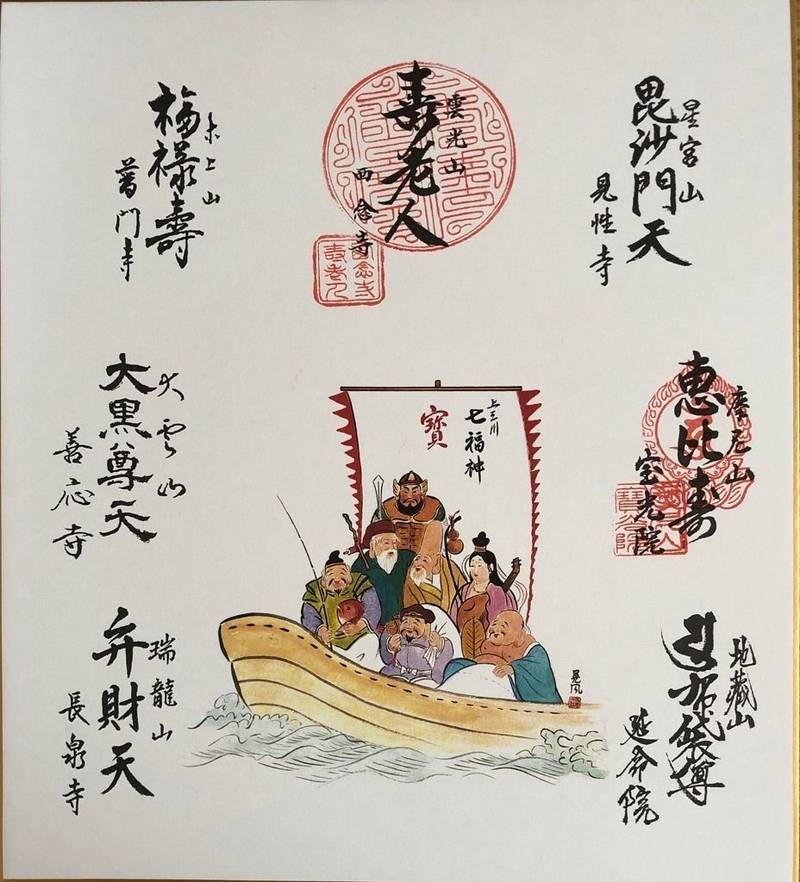 星宮山
毘沙門天
見性寺
雲光山
寿老人
西念寺
木上山
福禄壽
普門寺
摩尼山
恵比寿
宝光院
大雲山
大黒尊天
善応寺
上三川
七福神
寳
地蔵山
布袋尊
延命院
瑞龍山
弁財天
長泉寺